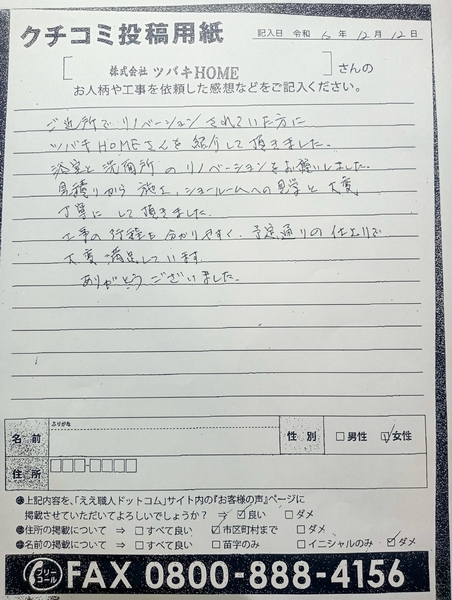 クチコミ投稿用紙
記入日 令和 6 年 12 月 12 日
株式会社 ツバキHOME さんの
お人柄や工事を依頼した感想などをご記入ください。
ご近所でリノベーションされていた方に
ツバキHOMEさんを紹介して頂きました。
浴室と洗面所のリノベーションをお願いしました。
見積りから施工、ショールームへの見学と大変
丁寧にして頂きました。
工事の行程も分かりやすく、予定通りの仕上りで
大変満足しています。
ありがとうございました。
ふりがな
名前
性別 □男性 ☑女性
住所
●上記内容を、「ええ職人ドットコム」サイト内の『お客様の声』ページに
掲載させていただいてよろしいでしょうか? ⇒ ☑良い □ダメ
●住所の掲載について ⇒ □すべて良い ☑市区町村まで □ダメ
●名前の掲載について ⇒ □すべて良い □苗字のみ □イニシャルのみ ☑ダメ
フリーコール FAX 0800-888-4156